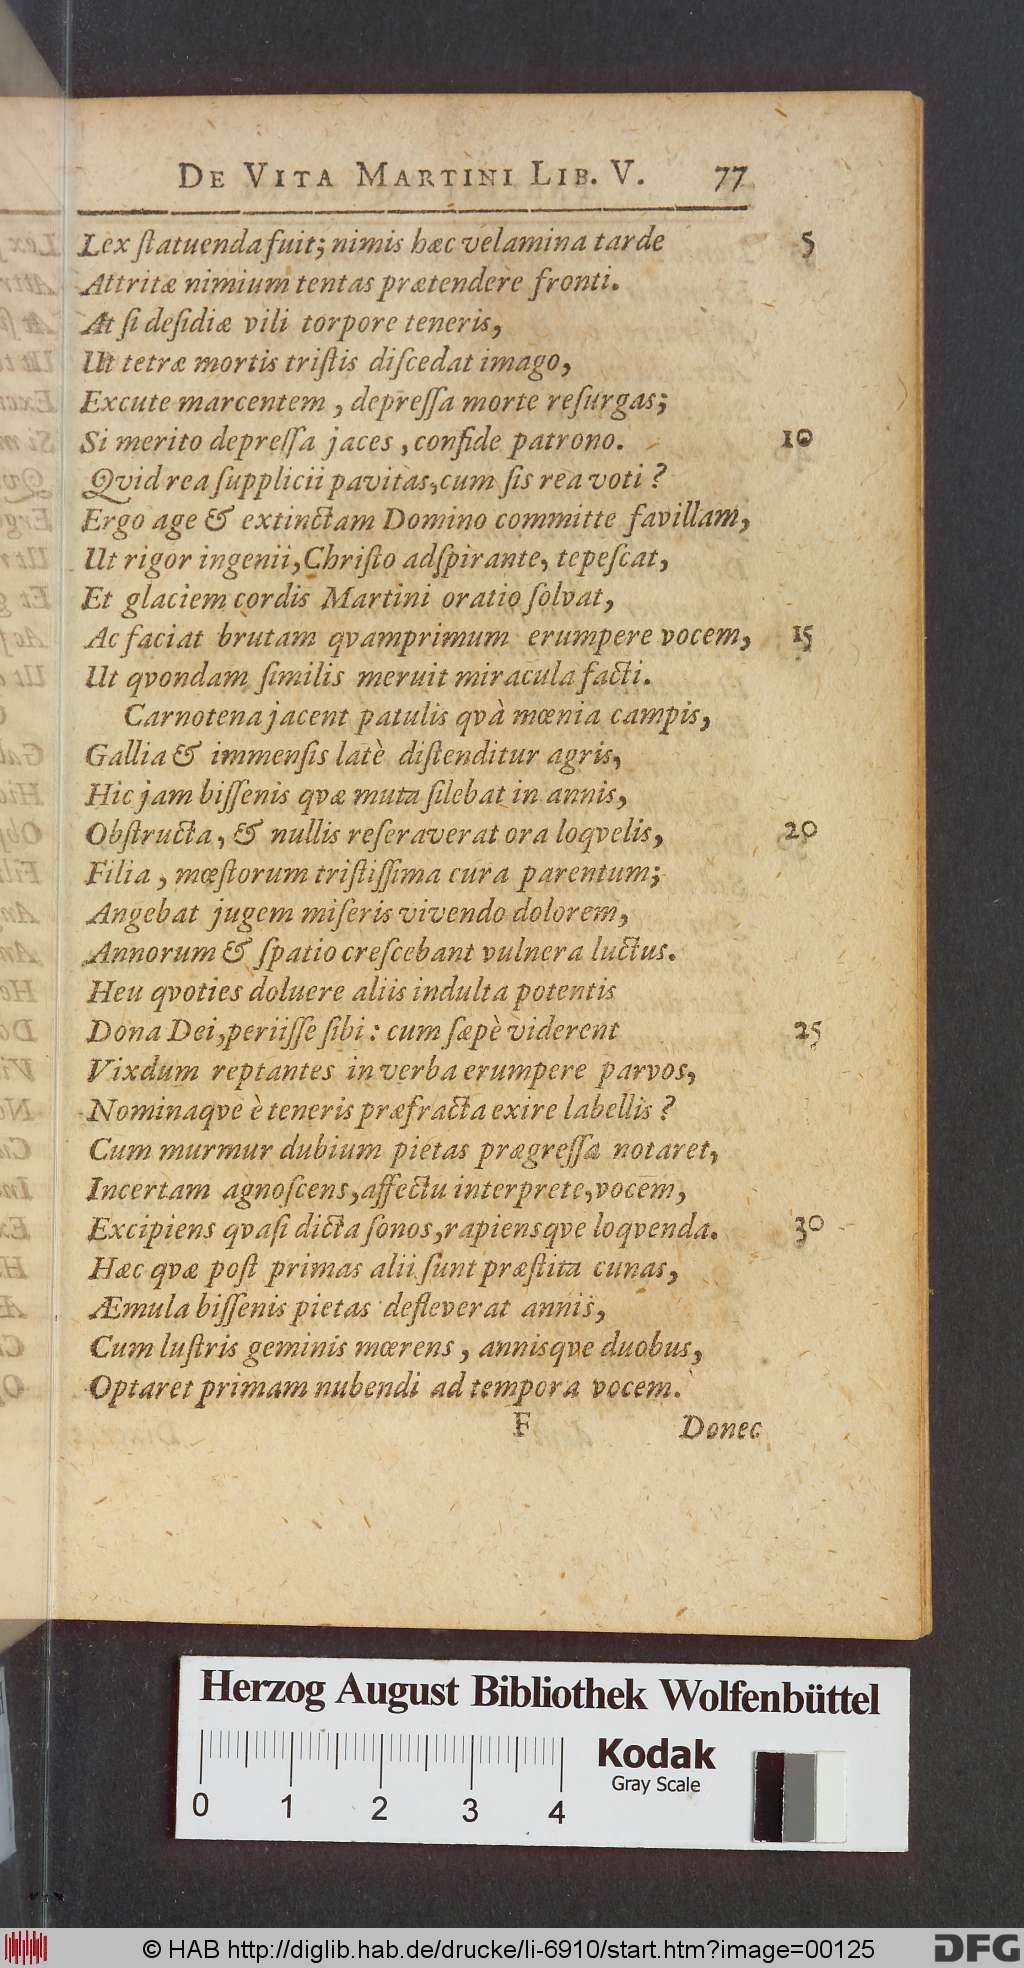 DE VITA MARTINI LIB. V. 77
Lex ſtatuenda fuit; nimis hæc velamina tarde 5
Attritæ nimium tentas prætendere fronti.
At ſi deſidiæ vili torpore teneris,
Ut tetræ mortis triſtis diſcedat imago,
Excute marcentem, depreſſa morte reſurgas;
Si merito depreſſa jaces, confide patrono. 10
Qvid rea ſupplicii pavitas, cum ſis rea voti?
Ergo age & extinctam Domino committe favillam,
Ut rigor ingenii, Chriſto adſpirante, tepeſcat,
Et glaciem cordis Martini oratio ſolvat,
Ac faciat brutam qvamprimum erumpere vocem, 15
Ut qvondam ſimilis meruit miracula facti.
Carnotena jacent patulis qvà mœnia campis,
Gallia & immenſis latè diſtenditur agris,
Hic jam biſſenis qvæ muta ſilebat in annis,
Obſtructa, & nullis reſeraverat ora loqvelis, 20
Filia, mœſtorum triſtiſſima cura parentum;
Angebat jugem miſeris vivendo dolorem,
Annorum & ſpatio creſcebant vulnera luctus.
Heu qvoties doluere aliis indulta potentis
Dona Dei, periiſſe ſibi: cum ſæpè viderent 25
Vixdum reptantes in verba erumpere parvos,
Nominaqve è teneris præfracta exire labellis?
Cum murmur dubium pietas prægreſſa notaret,
Incertam agnoſcens, affectu interprete, vocem,
Excipiens qvaſi dicta ſonos, rapiensqve loqvenda. 30
Hæc qvæ poſt primas alii ſunt præſtita cunas,
Æmula biſſenis pietas defleverat annis,
Cum luſtris geminis mœrens, annisqve duobus,
Optaret primam nubendi ad tempora vocem.
F Donec
Herzog August Bibliothek Wolfenbüttel
Kodak
Gray Scale
0 1 2 3 4
© HAB http://diglib.hab.de/drucke/li-6910/start.htm?image=00125
DFG